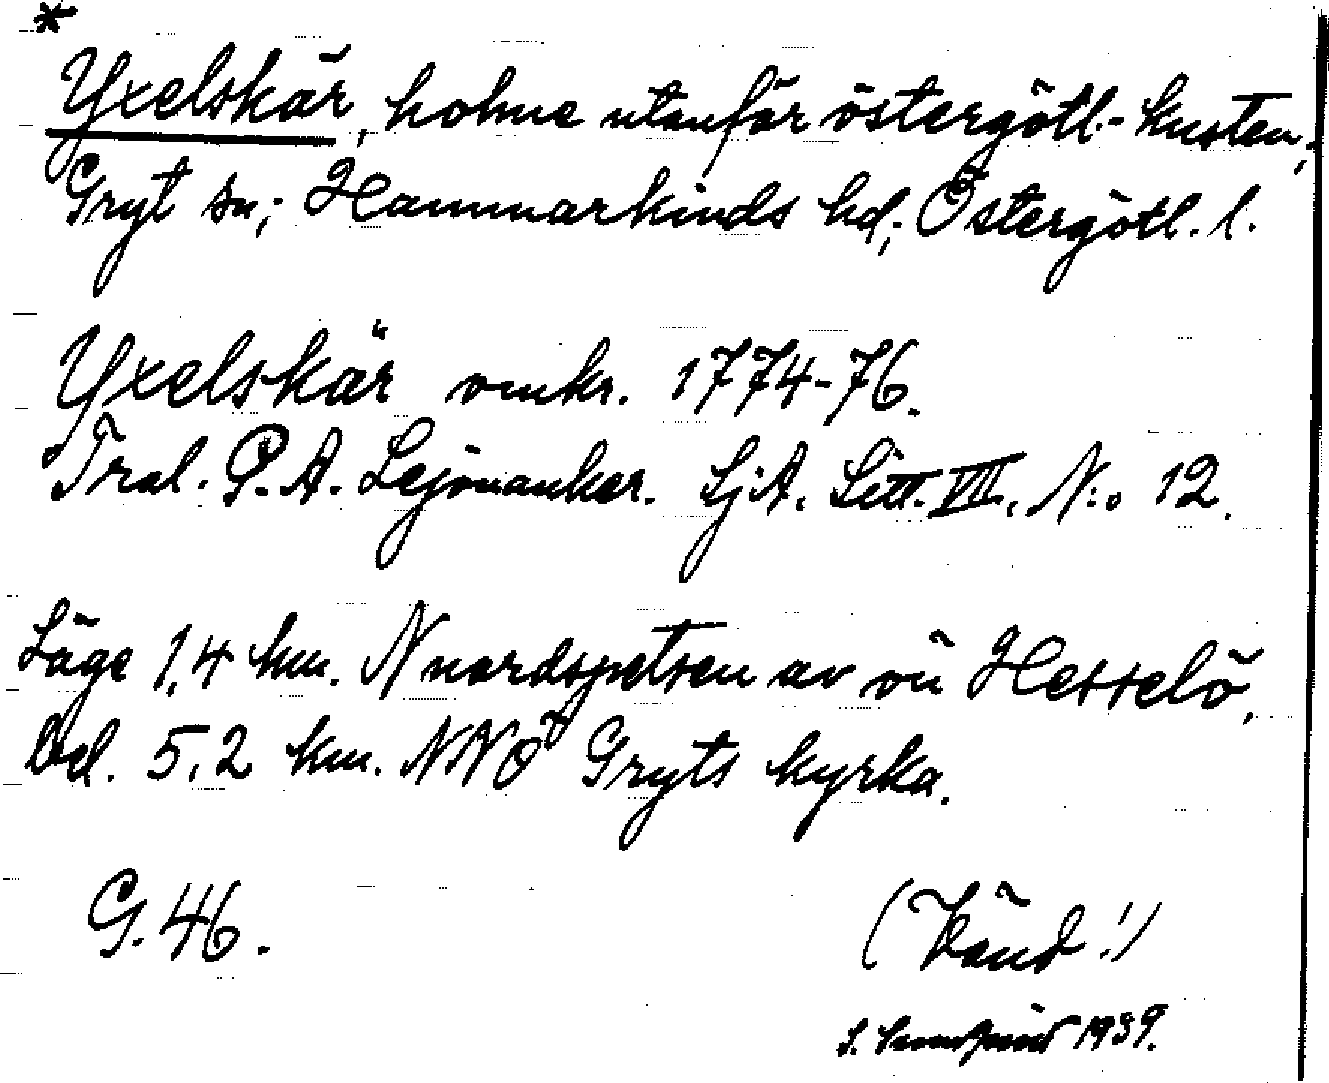 *
Yxelskär, holme utanför östergötl.-kusten,
Gryt sn; Hammarkinds hd; Östergötl. l.
Yxelskär omkr. 1774-76.
Tral. P. A. Lejonanker. LjA. Litt. VII. N:o 12.
Läge 1,4 km. N nordspetsen av ön Hesselö,
bel. 5,2 km. NNO Gryts kyrka.
G. 46.
(Vänd!)
S. 1939.